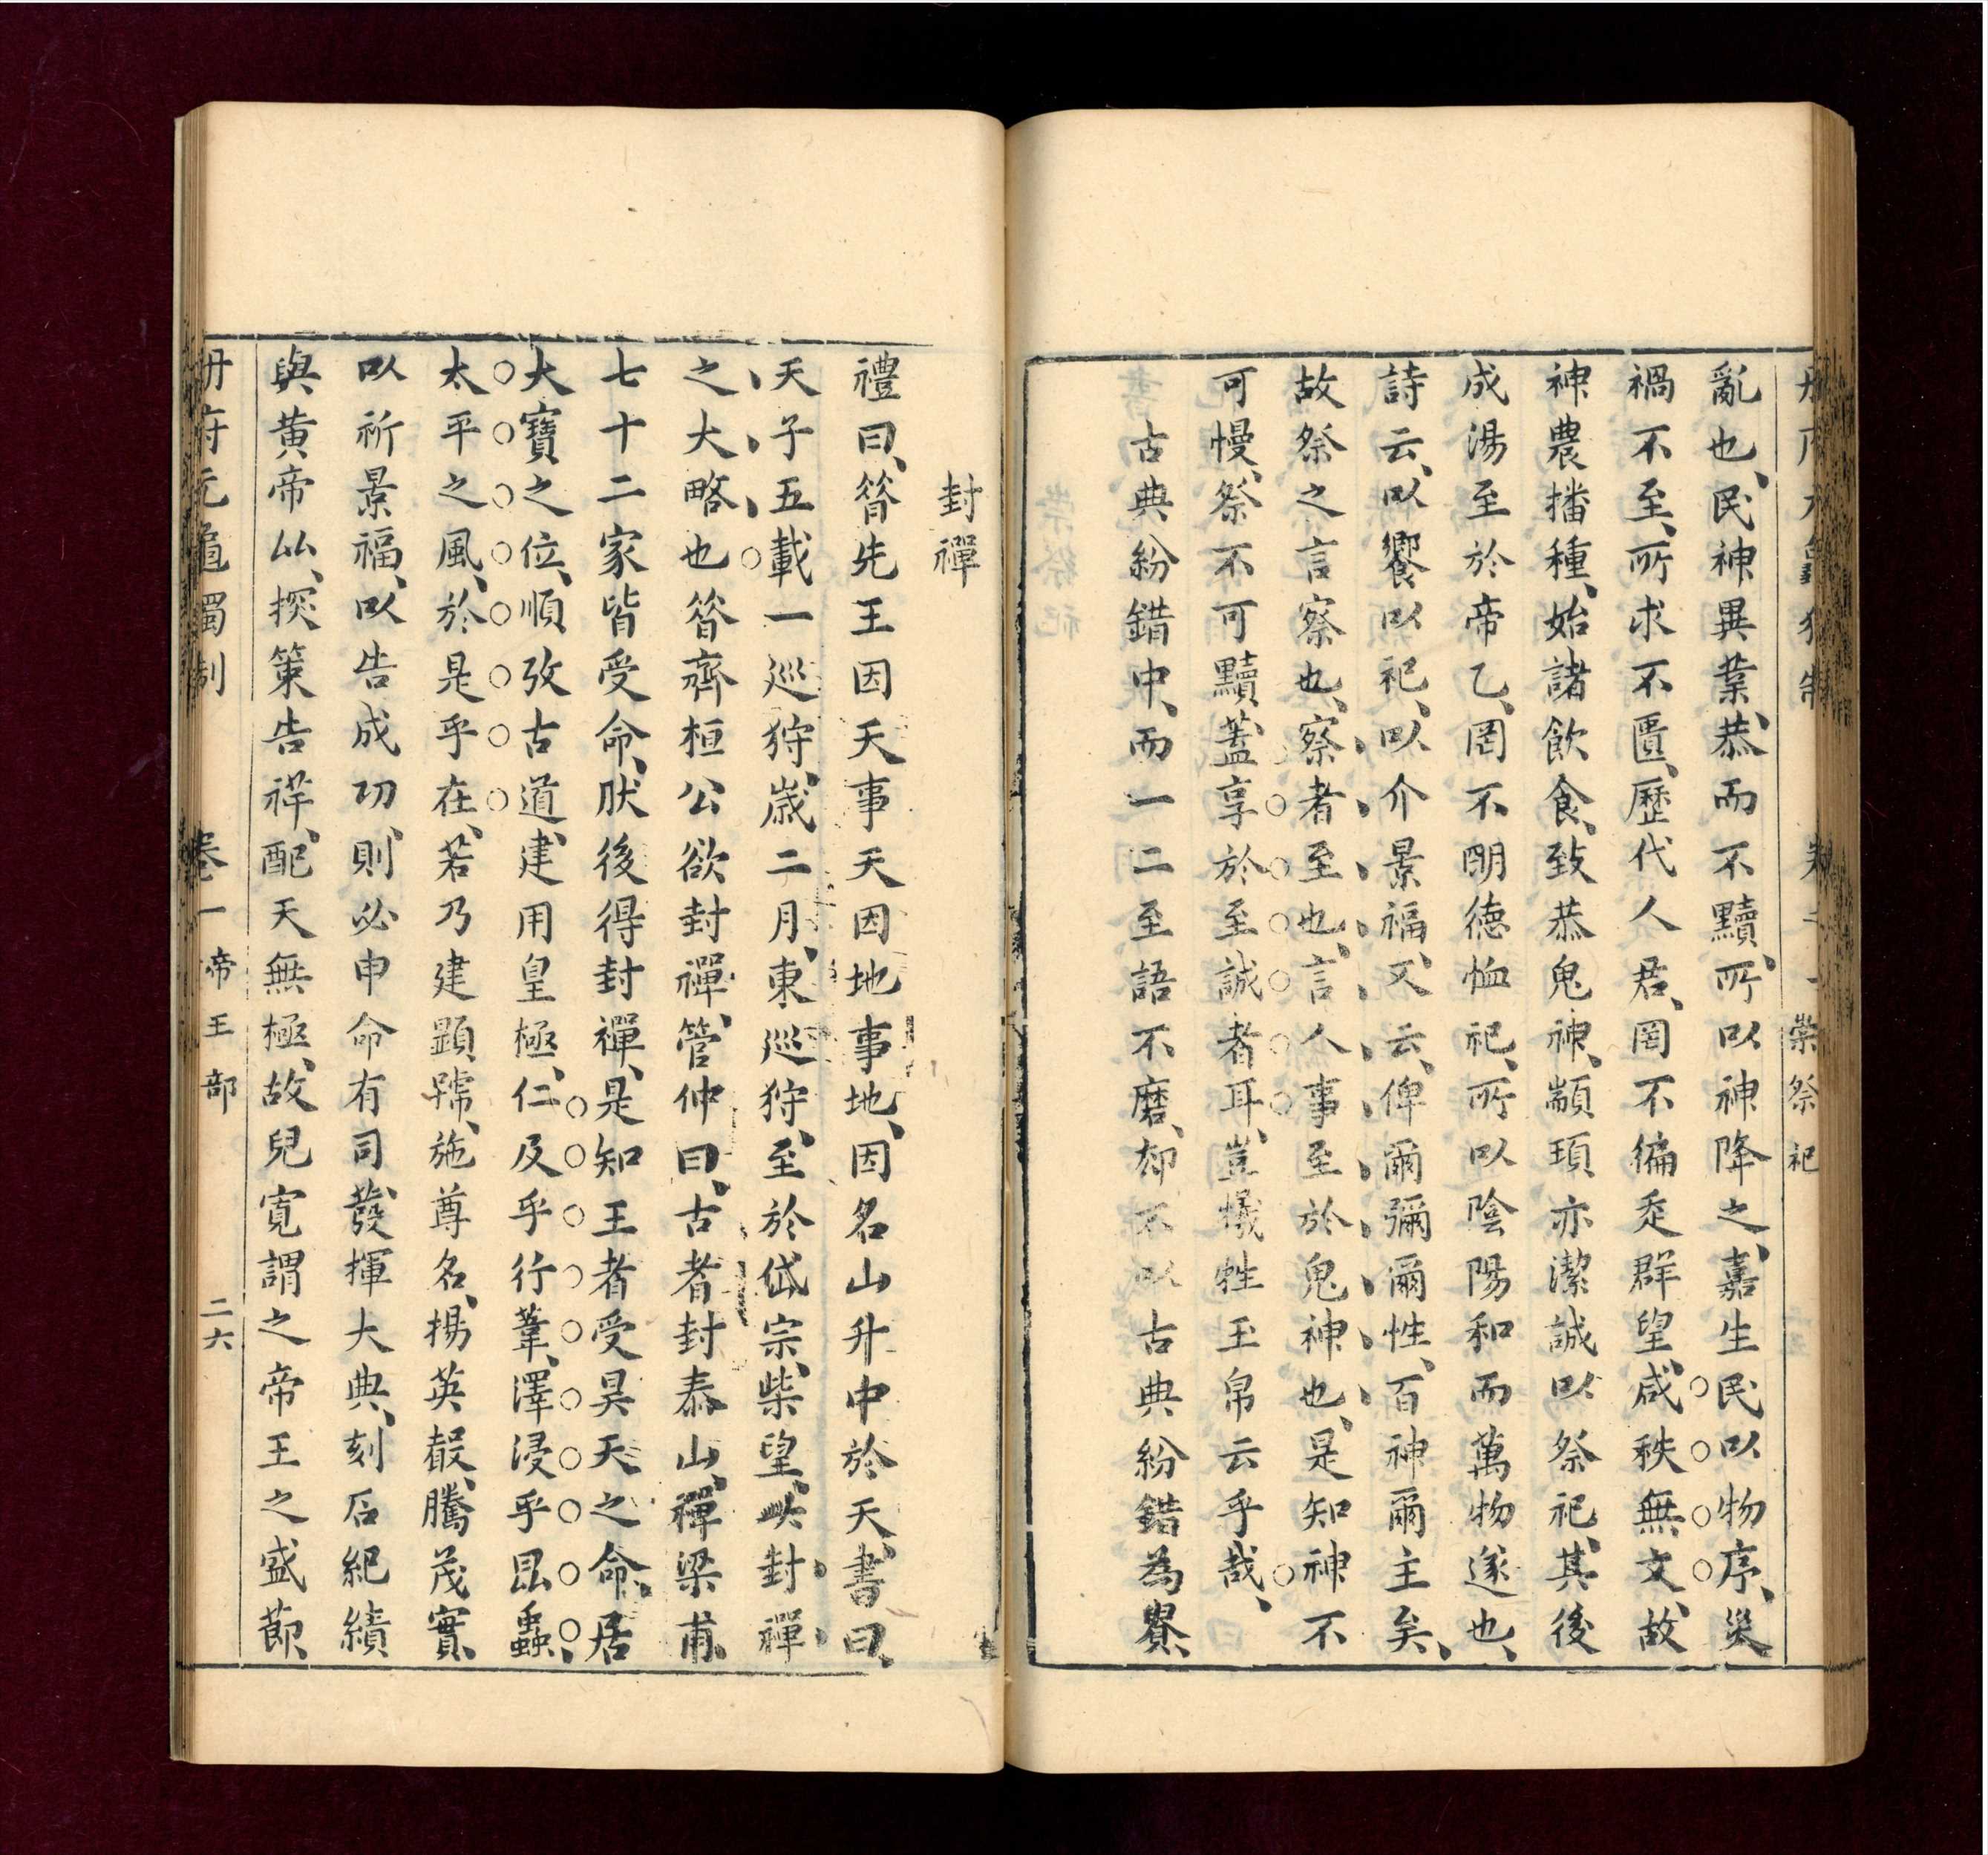 崇祭祀
亂也、民神異業、恭而不黷、所以神降之、嘉生民以物序、災
禍不至、所求不匱、歷代人君、罔不徧走群望、咸秩無文、故
神農播種、始諸飲食、致恭鬼神、顓頊亦潔誠以祭祀、其後
成湯至於帝乙、罔不明德恤祀、所以陰陽和而萬物遂也、
詩云、以饗以祀、以介景福、又云、俾爾彌爾性、百神爾主矣、
故祭之言察也、察者至也、言人事至於鬼神也、是知神不
可慢、祭不可黷、蓋享於至誠者耳、豈犧牲玉帛云乎哉、
古典紛錯中、而一二至語不磨、却不以古典紛錯為累、
封禪
禮曰、昔先王因天事天因地事地、因名山升中於天、書曰、
天子五載一巡狩、歲二月、東巡狩、至於岱宗、柴望、此封禪
之大略也昔齊桓公欲封禪、管仲曰、古者封泰山、禪梁甫
七十二家皆受命、然後得封禪、是知王者受昊天之命、居
大寶之位、順攷古道、建用皇極、仁及乎行葦、澤浸乎昆蟲、
太平之風、於是乎在、若乃建顯號、施尊名、揚英聲、騰茂實、
以祈景福、以告成功、則必申命有司、發揮大典、刻石紀績
與黃帝仙、探策告祥、配天無極、故兒寬謂之帝王之盛節、
冊府元龜獨制　卷一　帝王部　二六